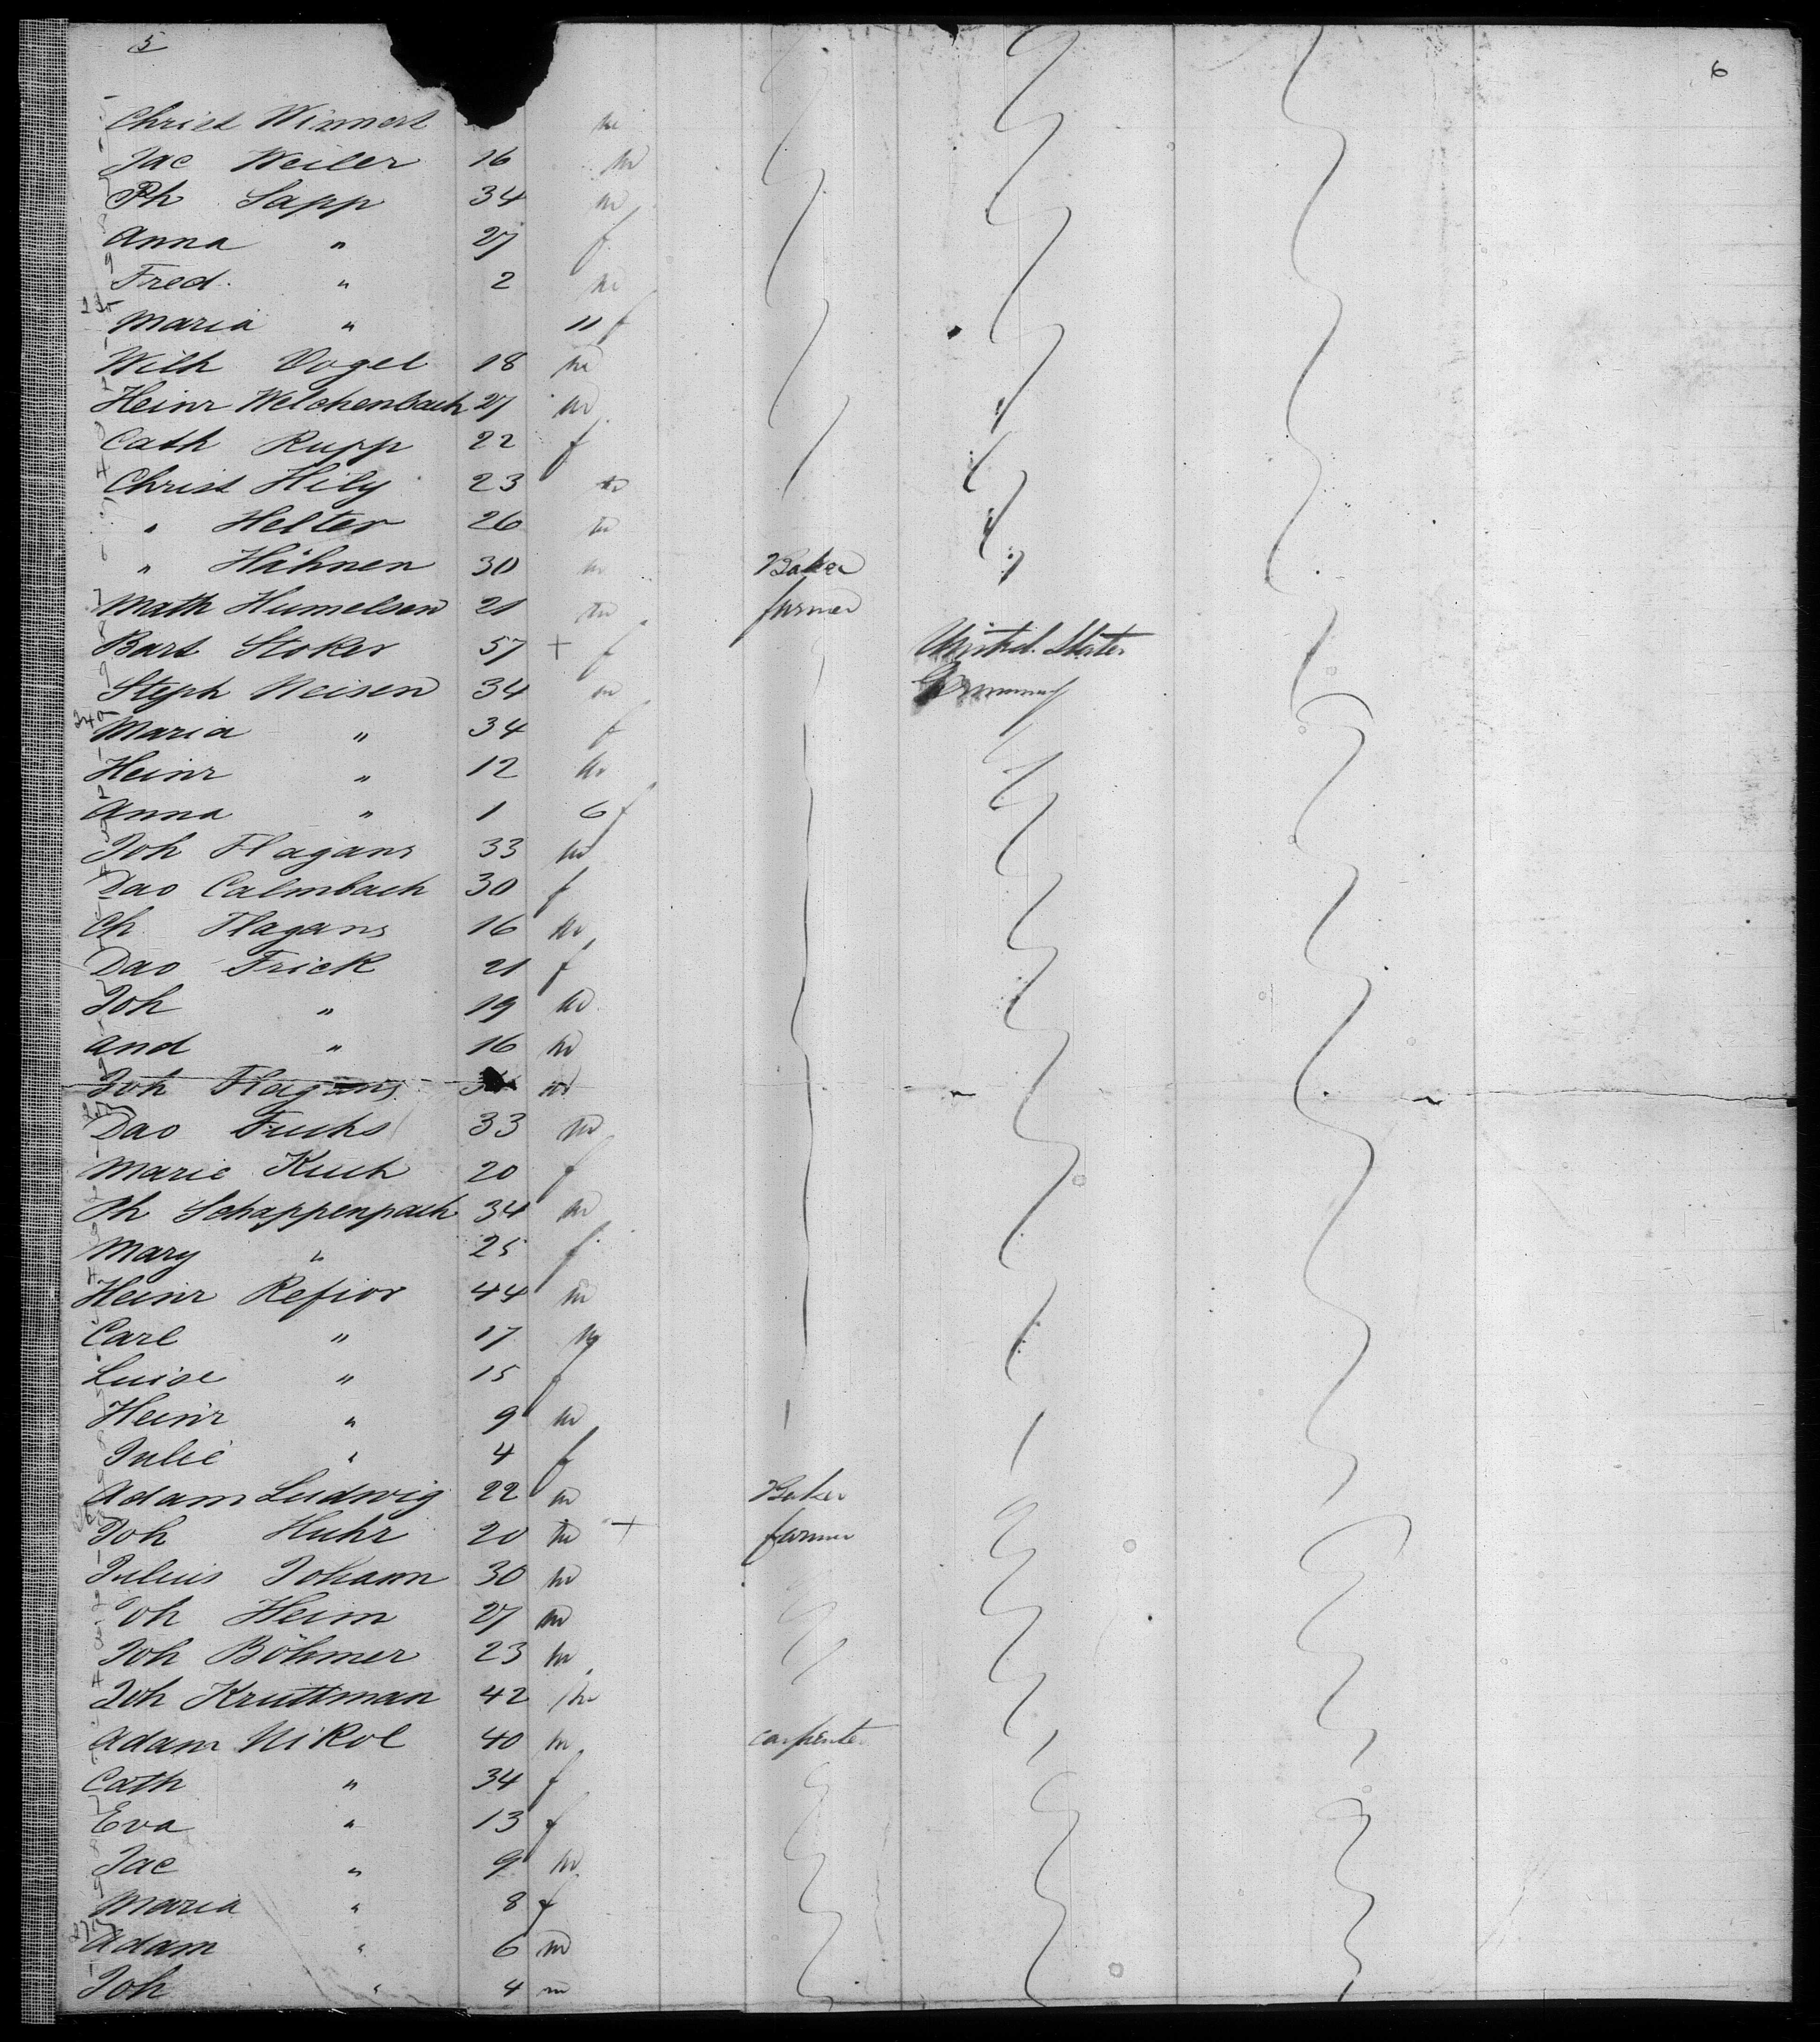 5
6
Christ Winnert m
Jac Weiler 16 m
Ph Sapp 34 m
Anna " 27 f
Fred. " 2 m
Maria " 11 f
Wilh Vogel 18 m
Heinr Welchenbach 27 m
Cath Rupp 22 f
Christ Hily 23 m
" Helter 26 m
" Hähnen 30 m Baker
Math Humelsen 21 m farmer
Bart Stoker 57 + f United States
Steph Neisen 34 m Germany
240 Maria " 34 f
Heinr " 12 m
Anna " 1 6 f
Joh Flagans 33 m
Dao Calmbach 30 f
Ch Flagans 16 m
Dao Frick 21 f
Joh " 19 m
And " 16 m
Joh Flagans m
Dao Fuchs 33 m
Marie Kuch 20 f
Ph Schappenpach 34 m
Mary " 25 f
Heinr Refior 44 m
Carl " 17 m
Luise " 15 f
Heinr " 9 m
Julie " 4 f
Adam Ludwig 22 m Baker
Joh Huhr 20 m + farmer
Julius Johann 30 m
Joh Heim 27 m
Joh Böhmer 23 m
Joh Kruttman 42 m
Adam Nikol 40 m carpenter
Cath " 34 f
Eva " 13 f
Jac " 9 m
Maria " 8 f
Adam " 6 m
Joh " 4 m